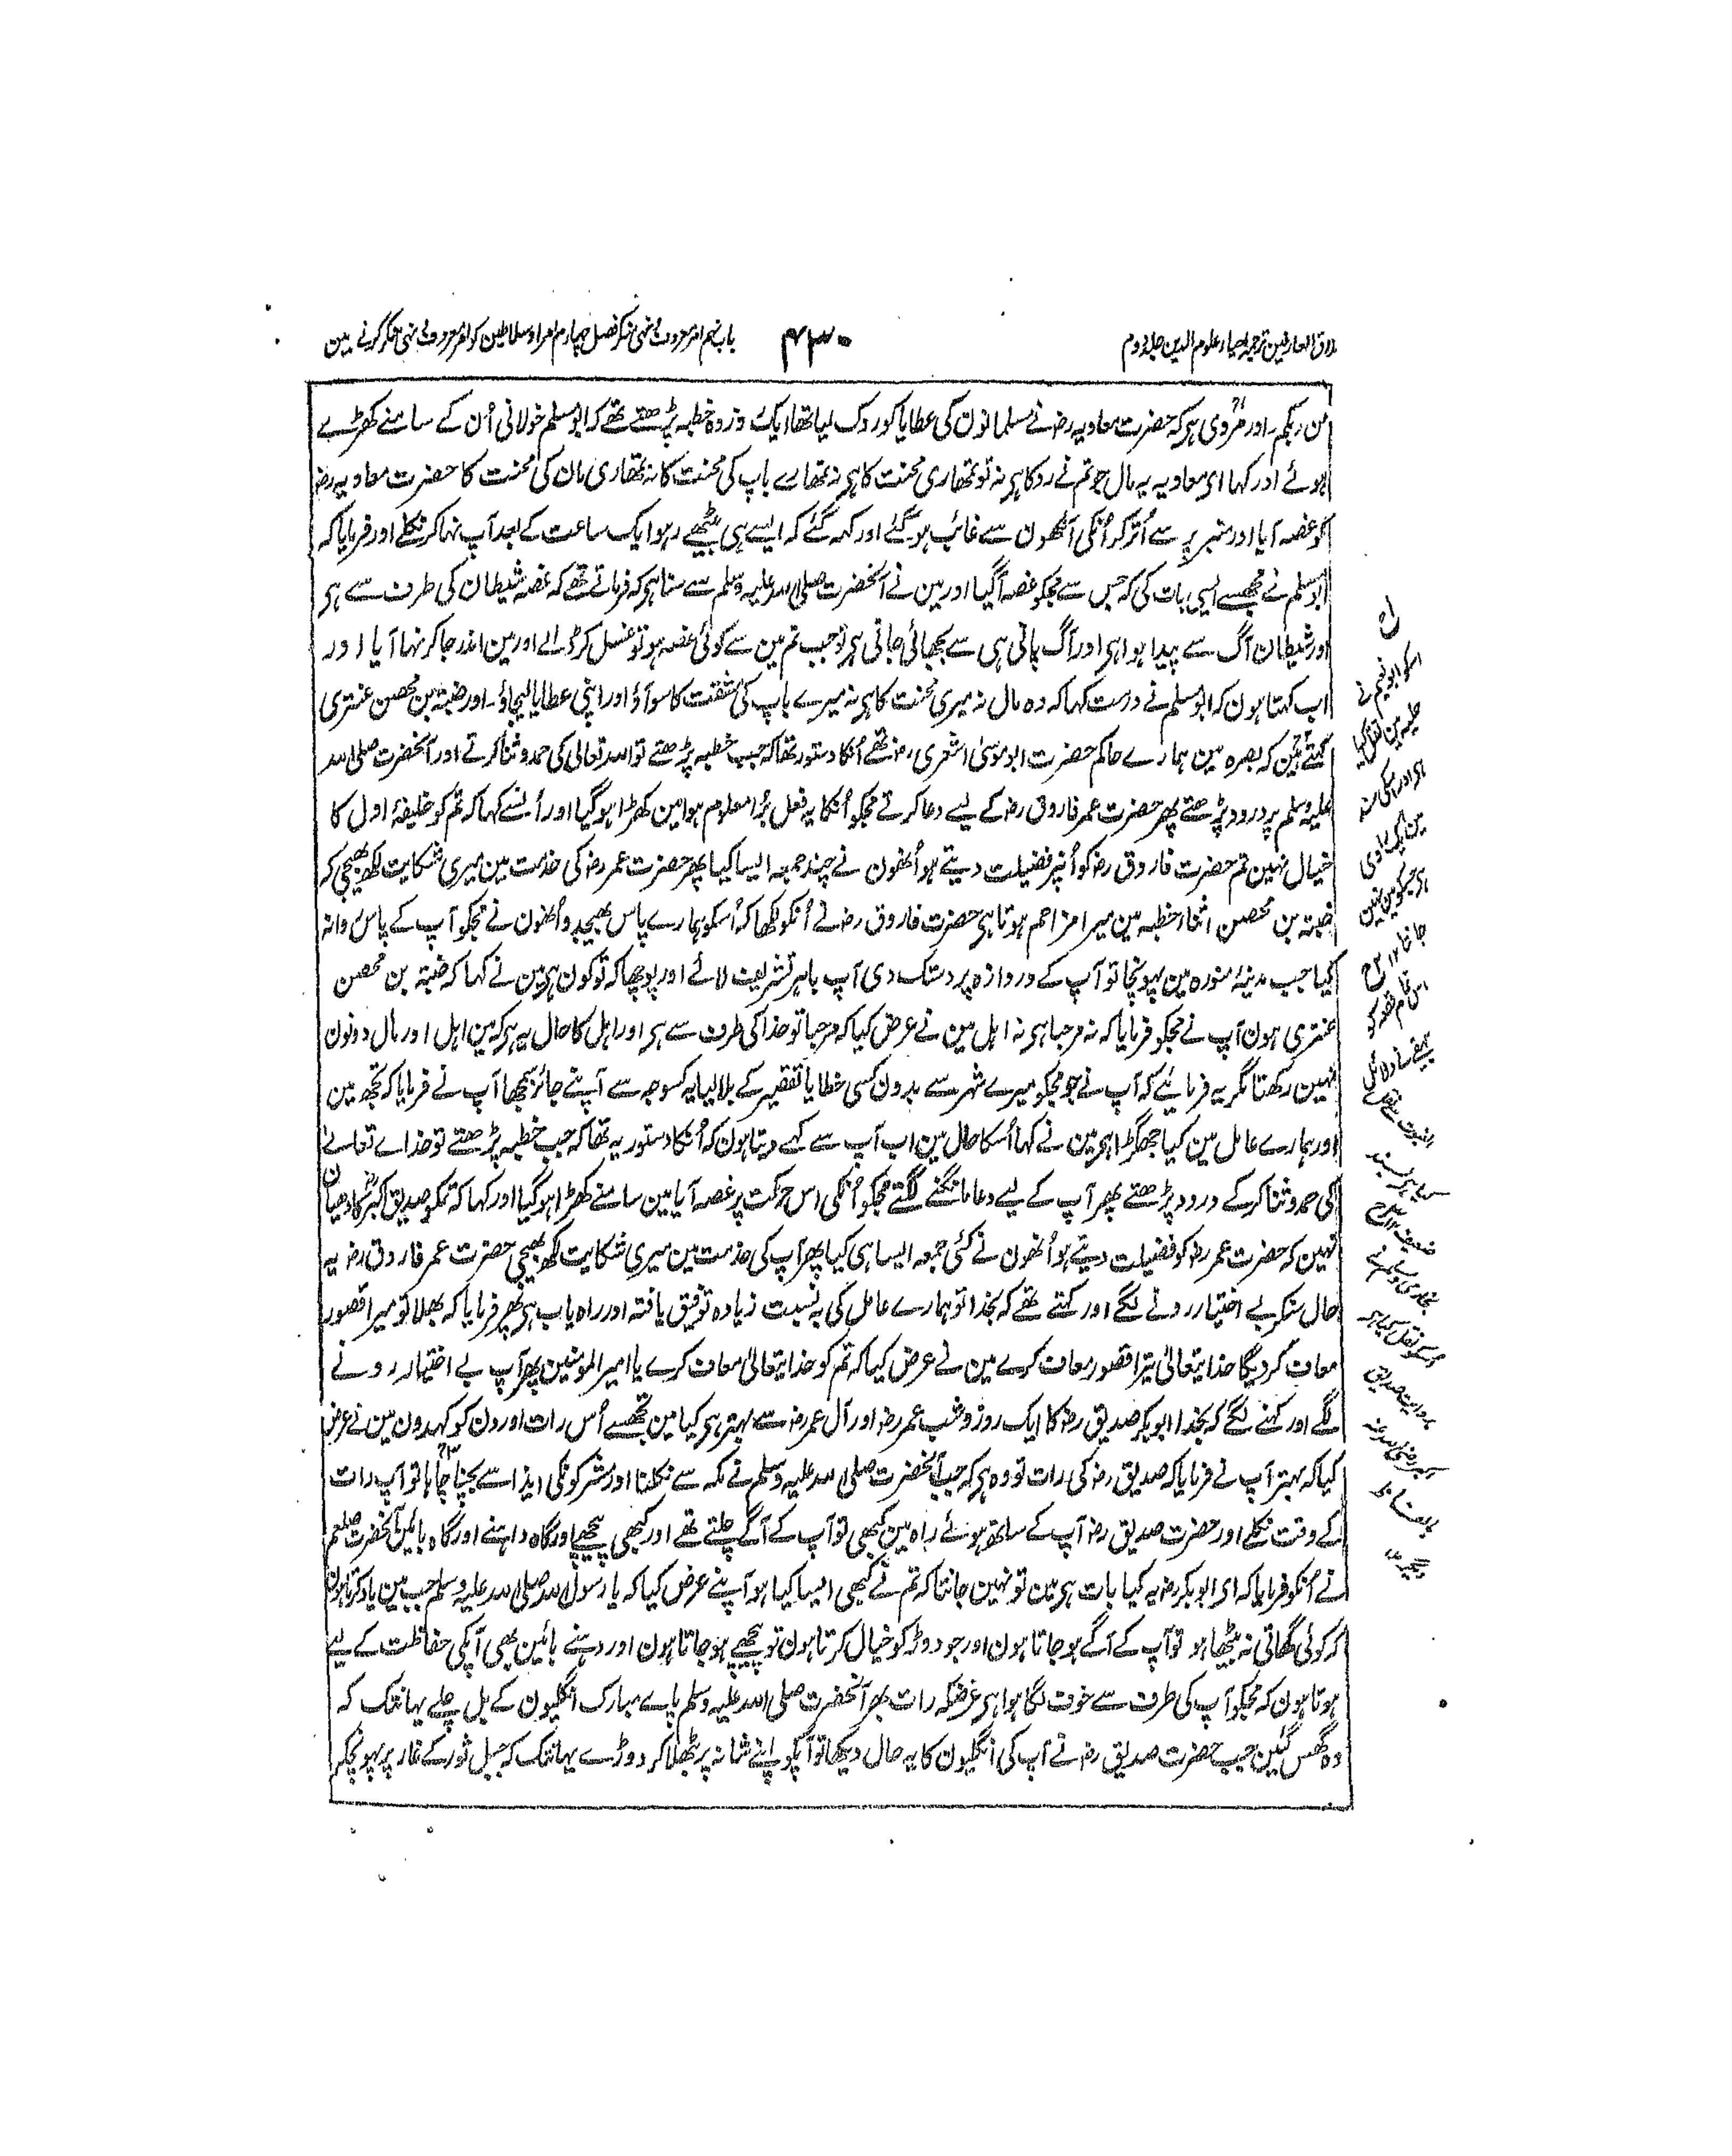 مذاق العارفین ترجمہ احیاء علوم الدین جلد دوم
۴۳۰
باب نہم امر معروف و نہی منکر فصل چہارم امرا و سلاطین کو امر معروف و نہی منکر کرنے مین
من ربکم۔ اور مروی ہی کہ حضرت معاویہ رضہ نے مسلمانون کی عطایا کو روک لیا تھا ایک روز وہ خطبہ پڑھتے تھے کہ ابو مسلم خولانی اُن کے سامنے کھڑے
ہوئے اور کہا ای معاویہ یہ مال جو تم نے روکا ہی نہ تو تمھاری محنت کا ہی نہ تمھارے باپ کی محنت کا نہ تمھاری مان کی محنت کا حضرت معاویہ رضہ
کو غصہ آیا اور منبر پر سے اُتر کر اُنکی آنکھون سے غائب ہو گئے اور کہہ گئے کہ ایسے ہی بیٹھے رہو ایک ساعت کے بعد آپ نہا کر نکلے اور فرمایا کہ
ابو مسلم نے مجھسے ایسی بات کی کہ جس سے مجکو غصہ آ گیا اور مین نے آنحضرت صلی اللہ علیہ وسلم سے سنا ہی کہ فرماتے تھے کہ غصہ شیطان کی طرف سے ہی
اور شیطان آگ سے پیدا ہوا ہی اور آگ پانی ہی سے بجھائی جاتی ہی تو جب تم مین سے کوئی غصہ ہو تو غسل کر ڈالے اور مین اندر جا کر نہا آیا اور
اب کہتا ہون کہ ابو مسلم نے درست کہا کہ وہ مال نہ میری محنت کا ہی نہ میرے باپ کی مشقت کا سو آؤ اور اپنی عطایا لیجاؤ۔ اور ضبتہ بن محصن عنتری
کہتے ہین کہ بصرہ مین ہمارے حاکم حضرت ابو موسیٰ اشعری رضہ تھے اُنکا دستور تھا کہ جب خطبہ پڑھتے تو اللہ تعالی کی حمد و ثنا کرتے اور آنحضرت صلی اللہ
علیہ وسلم پر درود پڑھتے پھر حضرت عمر فاروق رضہ کے لیے دعا کرتے مجکو اُنکا یہ فعل بُرا معلوم ہوا مین کھڑا ہو گیا اور اُنسے کہا کہ تم کو خلیفۂ اول کا
خیال نہین تم حضرت فاروق رضہ کو اُنپر فضیلت دیتے ہو اُنھون نے چند جمعہ ایسا کیا پھر حضرت عمر رضہ کی خدمت مین میری شکایت لکھ بھیجی کہ
ضبتہ بن محصن اثناء خطبہ مین میرا مزاحم ہوتا ہی حضرت فاروق رضہ نے اُنکو لکھا کہ اُسکو ہمارے پاس بھیجدو اُنھون نے مجکو آپ کے پاس روانہ
کیا جب مدینۂ منورہ مین پہونچا تو آپ کے دروازہ پر دستک دی آپ باہر تشریف لائے اور پوچھا کہ تو کون ہی مین نے کہا کہ ضبتہ بن محصن
عنتری ہون آپ نے مجکو فرمایا کہ نہ مرحبا ہی نہ اہل مین نے عرض کیا کہ مرحبا تو خدا کی طرف سے ہی اور اہل کا حال یہ ہی کہ مین اہل اور مال دونون
نہین رکھتا مگر یہ فرمائیے کہ آپ نے جو مجکو میرے شہر سے بدون کسی خطا یا تقصیر کے بلا لیا یہ کسوجہ سے آپنے جائز سمجھا آپ نے فرمایا کہ تجھ مین
اور ہمارے عامل مین کیا جھگڑا ہی مین نے کہا اُسکا حال مین اب آپ سے کہے دیتا ہون کہ اُنکا دستور یہ تھا کہ جب خطبہ پڑھتے تو خداے تعالےٰ
کی حمد و ثنا کر کے درود پڑھتے پھر آپ کے لیے دعا مانگنے لگتے مجکو اُنکی اس حرکت پر غصہ آیا مین سامنے کھڑا ہو گیا اور کہا کہ تمکو صدیق اکبر رضہ کا دھیان
نہین کہ حضرت عمر رضہ کو فضیلت دیتے ہو اُنھون نے کئی جمعہ ایسا ہی کیا پھر آپ کی خدمت مین میری شکایت لکھ بھیجی حضرت عمر فاروق رضہ یہ
حال سنکر بے اختیار رونے لگے اور کہتے تھے کہ بخدا تو ہمارے عامل کی بہ نسبت زیادہ توفیق یافتہ اور راہ یاب ہی پھر فرمایا کہ بھلا تو میرا قصور
معاف کر دیگا خدا یتعالیٰ تیرا قصور معاف کرے مین نے عرض کیا کہ تم کو خدا یتعالیٰ معاف کرے یا امیر المؤمنین پھر آپ بے اختیار رونے
لگے اور کہنے لگے کہ بخدا ابو بکر صدیق رضہ کا ایک روز و شب عمر رضہ اور آل عمر رضہ سے بہتر ہی کیا مین تجھسے اُس رات اور دن کو کہدون مین نے عرض
کیا کہ بہتر آپ نے فرمایا کہ صدیق رضہ کی رات تو وہ ہی کہ جب آنحضرت صلی اللہ علیہ وسلم نے مکہ سے نکلنا اور مشرکونکی ایذا سے بچنا چاہا تو آپ رات
کے وقت نکلے اور حضرت صدیق رضہ آپ کے ساتھ ہوئے راہ مین کبھی تو آپ کے آگے چلتے تھے اور کبھی پیچھے اور گاہ داہنے اور گاہ بائین آنحضرت صلعم
نے اُنکو فرمایا کہ ای ابو بکر رضہ یہ کیا بات ہی مین تو نہین جانتا کہ تم نے کبھی ایسا کیا ہو آپنے عرض کیا کہ یا رسول اللہ صلی اللہ علیہ وسلم جب مین یاد کرتا ہون
کہ کوئی گھاتی نہ بیٹھا ہو تو آپ کے آگے ہو جاتا ہون اور جو دوڑ کو خیال کرتا ہون تو پیچھے ہو جاتا ہون اور دہنے بائین بھی آپکی حفاظت کے لیے
ہوتا ہون کہ مجکو آپ کی طرف سے خوف لگا ہوا ہی غرضکہ رات بھر آنحضرت صلی اللہ علیہ وسلم پاے مبارک انگلیون کے بل چلے یہانتک کہ
وہ گھس گئین جب حضرت صدیق رضہ نے آپ کی انگلیون کا یہ حال دیکھا تو آپکو اپنے شانہ پر بٹھلا کر دوڑے یہانتک کہ جبل ثور کے غار پر پہونچکر
اسکو ابو نعیم نے
حلیہ مین نقل کیا
ہی اور اسکی سند
مین ایک راوی
ہی جسکو مین نہین
جانتا ۱۲
اس تمام قصہ کو
بیہقی نے دلائل
النبوت مین
کیا ہی بسند
ضعیف ۱۲
بخاری و مسلم نے
اسکو نقل کیا ہی
بروایت صدیق
اکبر رضی اللہ عنہ
بالفاظ
دیگر ۱۲